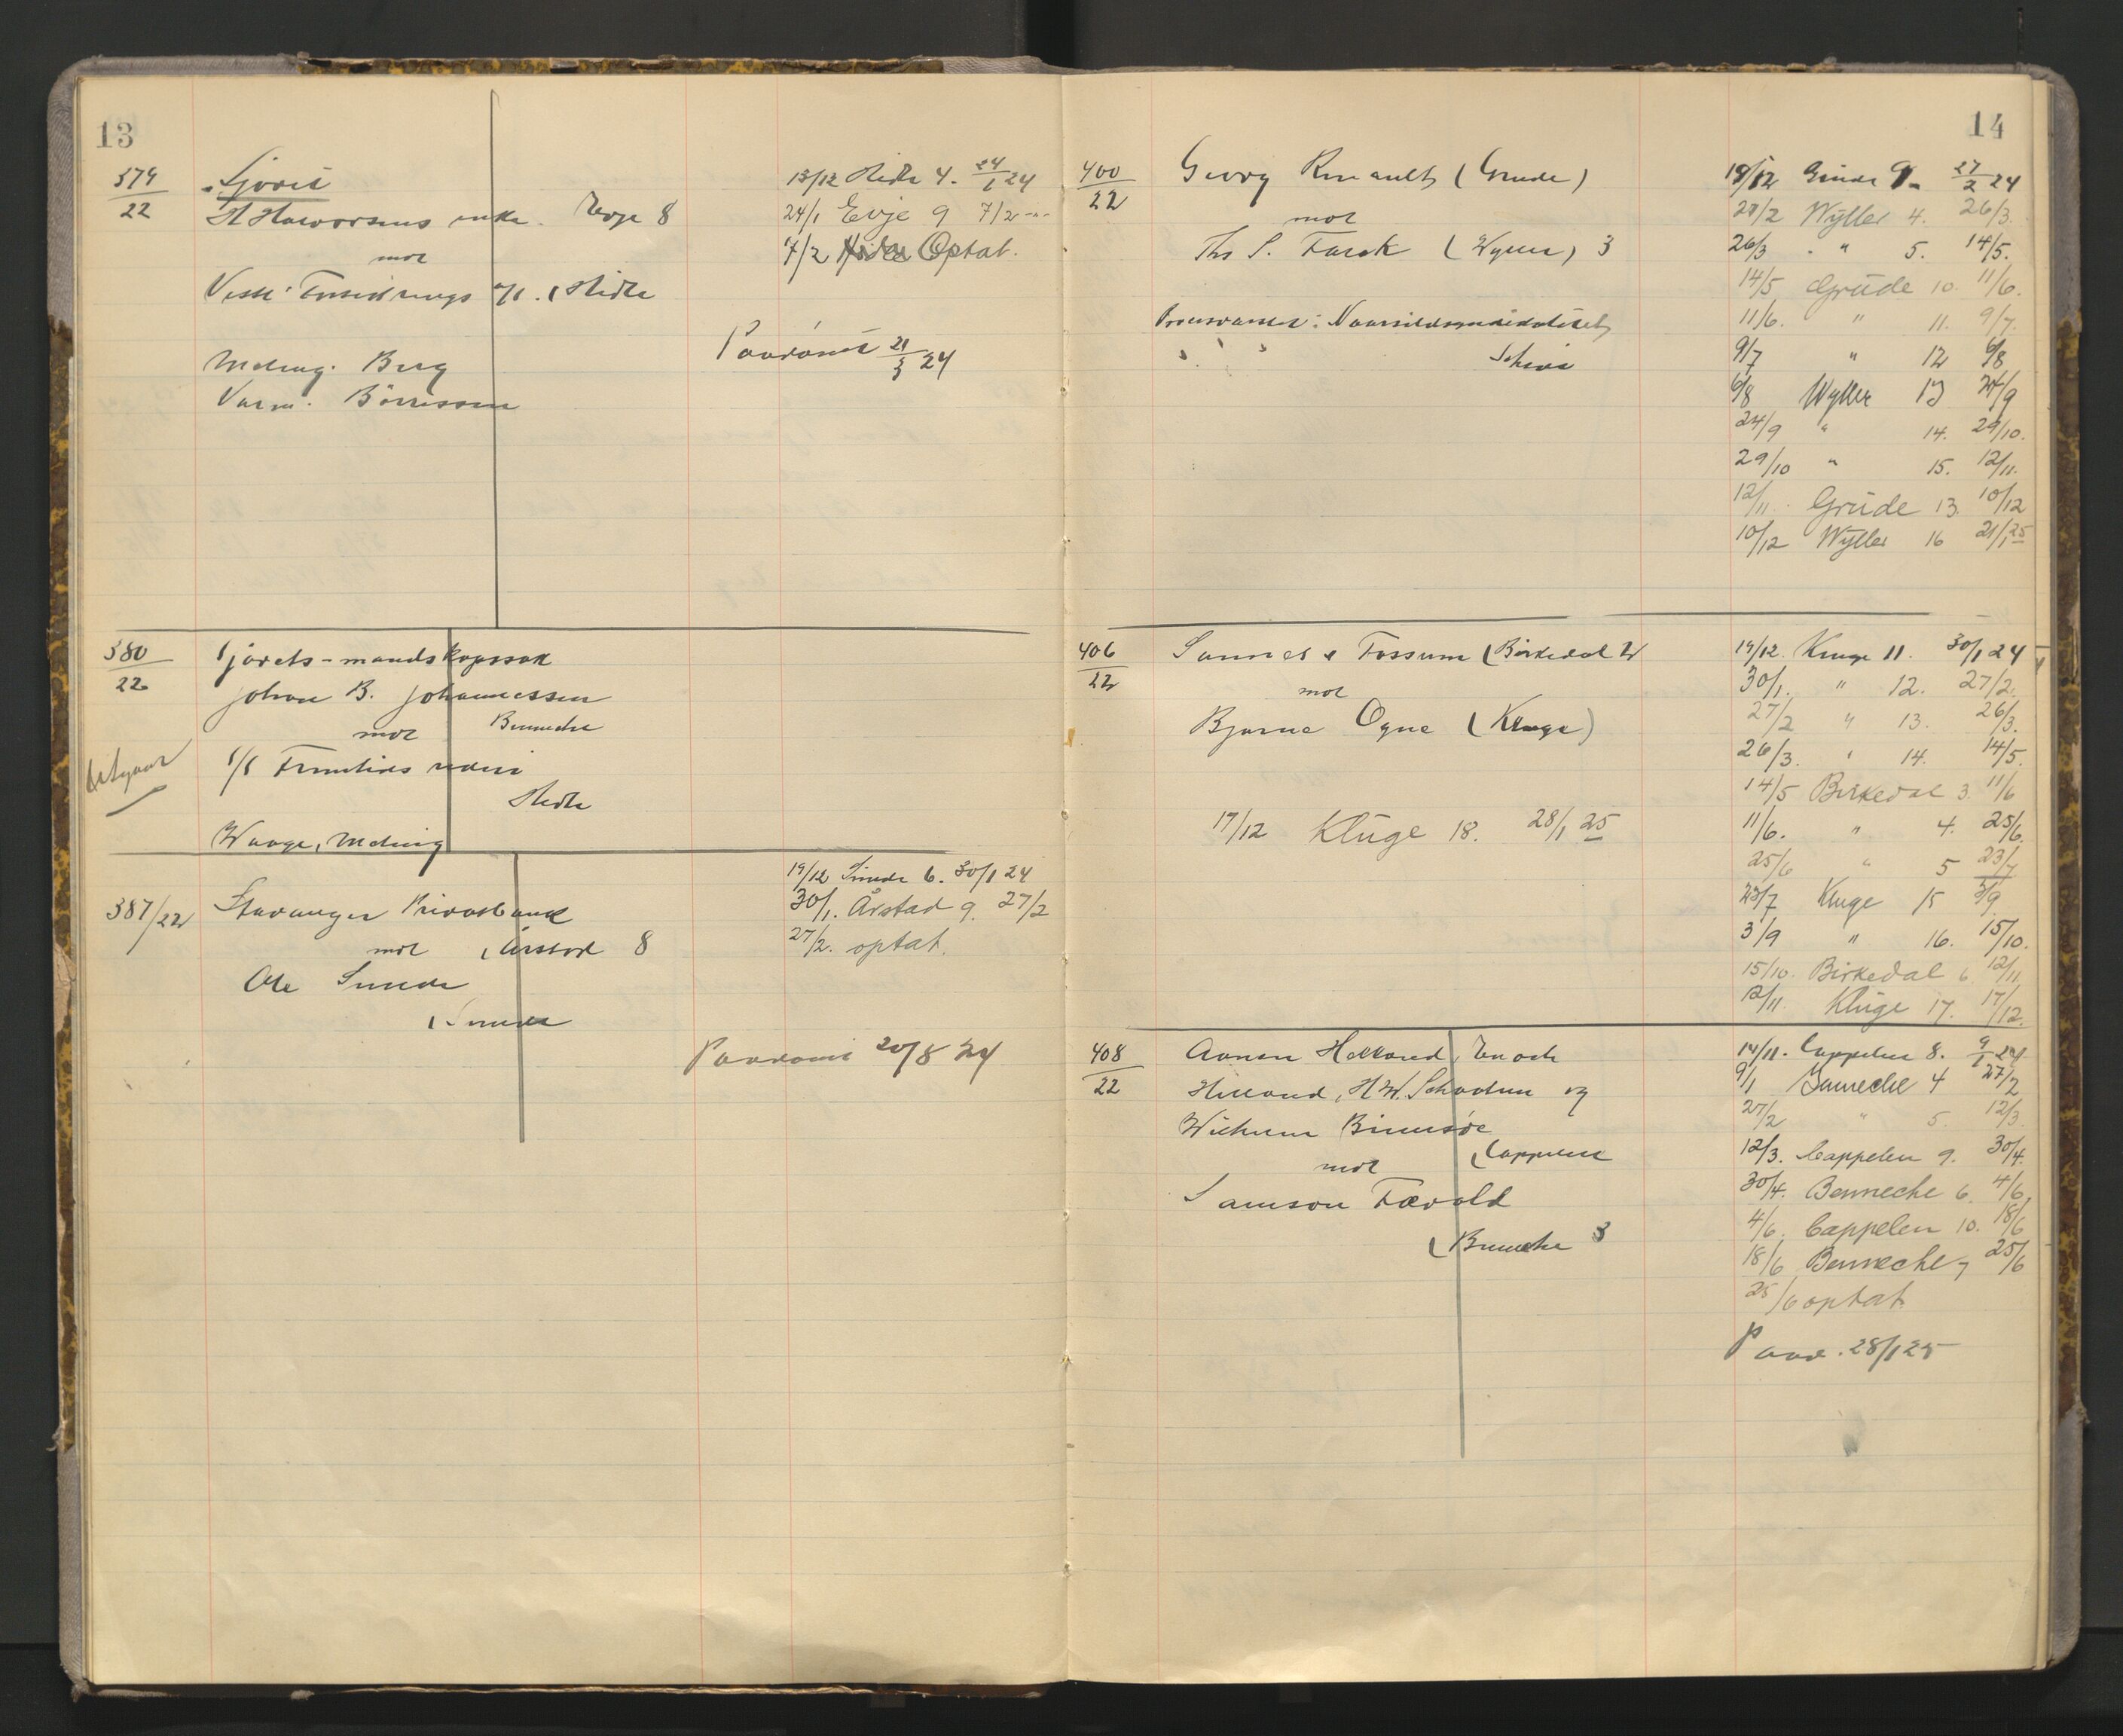 13
379
22
Sjøret
mot
Evje 8
Meling. Berg
Varm. Börressen
13/12 Hidle 4. 24/1 24
24/1 Evje 9 7/2 -"-
7/2 Optat.
Paadömt 21/3 24
380
22
Sjørets-mandskapssak
Johan B. Johannessen
mot Bennecke
Hidle
Waage, Meling
387/22
Stavanger Privatbank
mot (Årstad 8
Ole Sunde
(Sunde
19/12 Sunde 6. 30/1 24
30/1. Årstad 9. 27/2
27/2. optat.
Paadömt 20/8 24
14
400
22
Georg (Grude)
mot
Ths S. Farok (Wyller) 3
19/12 Grude 9. 27/2 24
27/2 Wÿller 4. 26/3.
26/3 " 5. 14/5.
14/5 Grüde 10. 11/6.
11/6. " 11. 9/7.
9/7 " 12 6/8
6/8 Wyller 13 24/9
24/9 " 14. 29/10.
29/10 " 15. 12/11.
12/11. Grüde 13. 10/12
10/12 Wÿller 16 21/1 25
406
22
Sannes & Fossum (Birkedal 2
mot
Bjarne Ogne (Kluge)
17/12 Klüge 18. 28/1 25
19/12. Kluge 11. 30/1 24
30/1. " 12. 27/2.
27/2 " 13. 26/3.
26/3. " 14. 14/5.
14/5 Birkedal 3. 11/6
11/6. " 4. 25/6.
25/6 " 5 23/7
23/7 Kluge 15 3/9
3/9 " 16. 15/10.
15/10. Birkedal 6 12/11
12/11. Klüge 17. 17/12.
408
22
Helland, Enoch
Helland, H.W. Schadun og
Wilhelm
mot (Cappelen
Samson Tævold
(Bennecke 3
14/11. Cappelen 8. 9/1 24
9/1 Bennecke 4 27/2
27/2 " 5. 12/3.
12/3. Cappelen 9. 30/4.
30/4. Bennecke 6. 4/6.
4/6. Cappelen 10. 18/6
18/6 Bennecke 7 25/6
25/6 optat.
Paad. 28/1 25